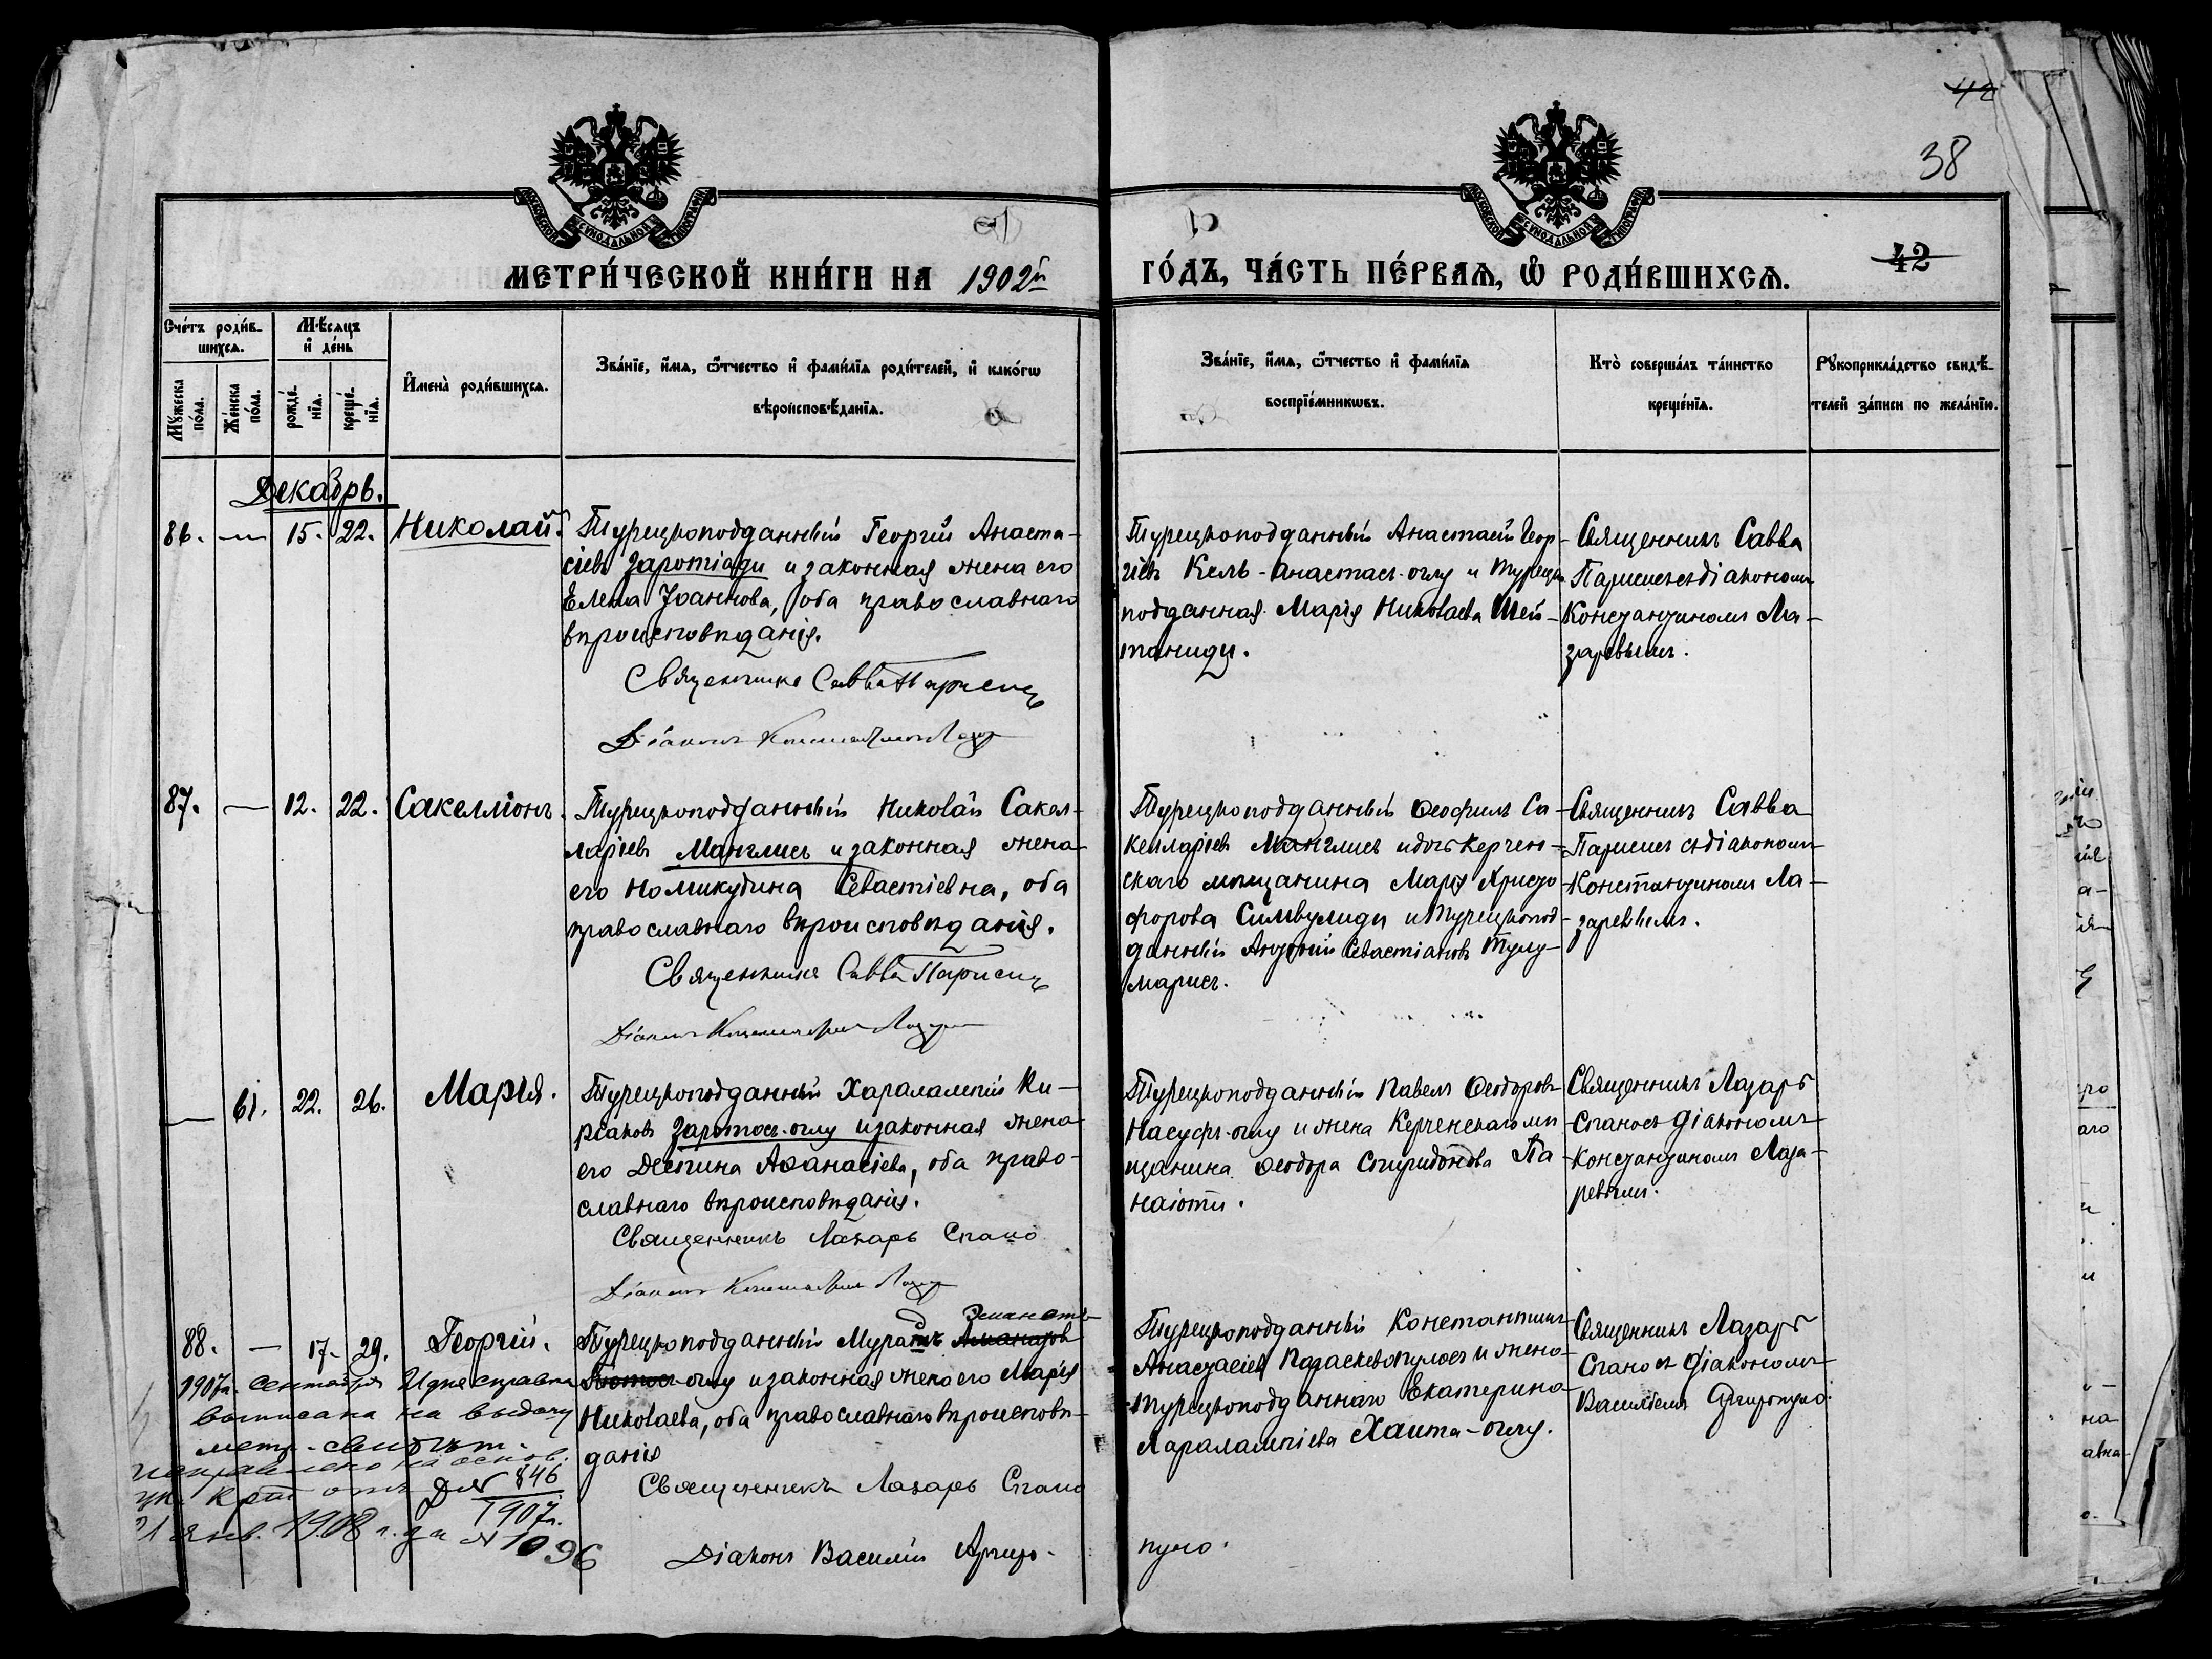 42
38
МЕТРИ́ЧЕСКОЙ КНИ́ГИ НА 1902й
ГО́ДЪ, ЧА́СТЬ ПЕ́РВАЯ, Ѿ РОДИ́ВШИХСЯ.
42
Сче́тъ роди́в-
шихся.
Мѣ́сяцъ
и҆ де́нь
Мꙋжеска по́ла.
Же́нска по́ла.
рожде́нїя.
креще́нїя.
И҆мена̀ роди́вшихся.
Зва́нїе, и҆́мя, ѻ҆́тчество и҆ фами́лїя роди́телей, и҆ како́гѡ
вѣроисповѣ́данїя.
Зва́нїе, и҆́мя, ѻ҆́тчество и҆ фами́лїя
воспрїе́мникѡвъ.
Кто̀ соверша́лъ та́инство
креще́нїя.
Рꙋкоприкла́дство свидѣ́-
телей за́писи по жела́нїю.
Декабрь.
86. — 15. 22. Николай.
Турецкоподданный Георгій Анаста-
сіевъ Заротіади и законная жена его
Елена Іоаннова, оба православнаго
вѣроисповѣданія.
Священникъ Савва Парисисъ
Діаконъ
Турецкоподданный Анастасій Геор-
гіевъ Кель-Анастас-оглу и турецко
подданная Марія Николаева Шей-
таниди.
Священникъ Савва
Парисисъ съ діакономъ
Константиномъ Ла-
заревымъ.
87. — 12. 22. Сакелліонъ.
Турецкоподданный Николай Сакел-
ларіевъ Манглисъ и законная жена
его Севастіевна, оба
православнаго вѣроисповѣданія.
Священникъ Савва Парисисъ
Діаконъ
Турецкоподданный Ѳеофилъ Са-
келларіевъ Манглисъ и дочь Керчен-
скаго мѣщанина Марія Христо-
форова Симвулиди и турецкопод-
данный Антоній Севастіановъ Тулу-
марисъ.
Священникъ Савва
Парисисъ съ діакономъ
Константиномъ Ла-
заревымъ.
— 61. 22. 26. Марія.
Турецкоподданный Харалампій Ки-
ріаковъ Заротос-оглу и законная жена
его Деспина Аѳанасіева, оба право-
славнаго вѣроисповѣданія.
Священникъ Лазарь Спано
Діаконъ
Турецкоподданный Павелъ Ѳеодоровъ
Насуфъ-оглу и жена Керченскаго мѣ-
щанина Ѳеодора Спиридонова Па-
наіоти.
Священникъ Лазарь
Спано съ діакономъ
Константиномъ Лаза-
ревымъ.
88. — 17. 29. Георгій.
Турецкоподданный Муратъ
оглу и законная жена его Марія
Николаева, оба православнаго вѣроисповѣ-
данія
Священникъ Лазарь Спано
Діаконъ Василій Аргиро-
пуло.
Турецкоподданный Константинъ
Анастасіевъ Параскевопулосъ и жена
турецкоподданнаго Екатерина
Харалампіева Хаита-оглу.
Священникъ Лазарь
Спано съ діакономъ
Василіемъ Аргиропуло.
1907г. Сентября 11 дня справка
выписана на выдачу
метр. свидѣт.
Исправлено на основ.
846
1907г.
янв. 1908 г. за № 1096